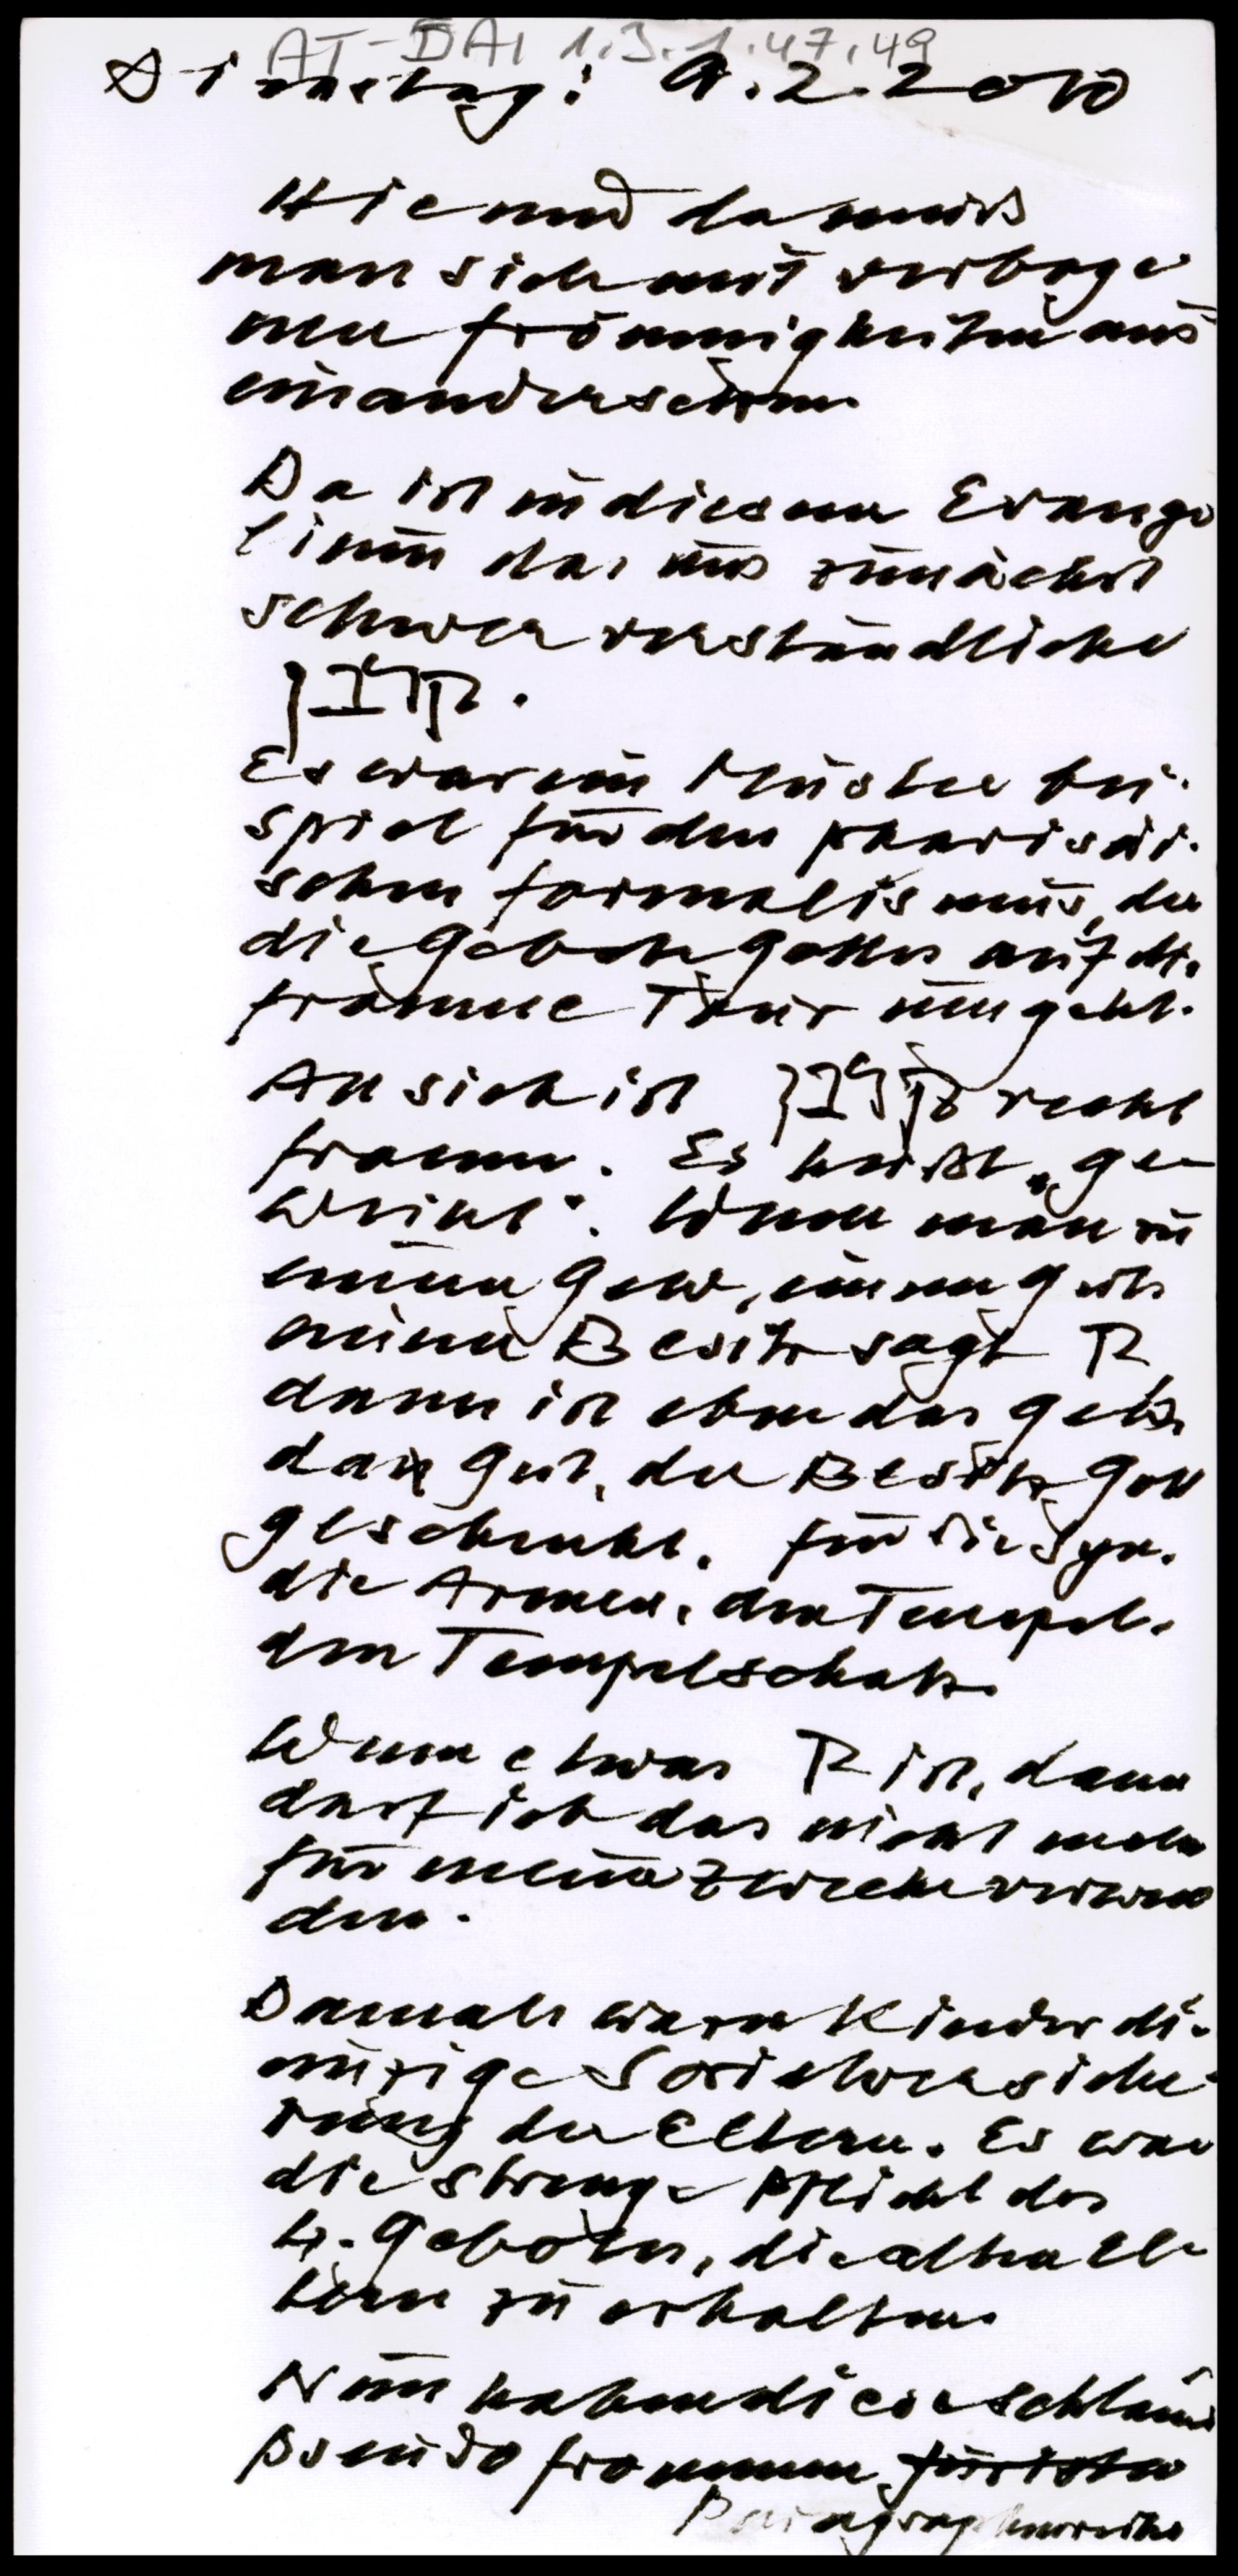 AT-DAI 1.3.1.47.49
Dienstag: 9.2.2010
Hie und da muß
man sich mit verboge
nen Frömmigkeiten aus
einandersetzen.
Da ist in diesem Evange
lium das uns zunächst
schwer verständliche
קרבן.
Es war ein Muster bei-
spiel für den pharisäi-
schen Formalismus, der
die Gebote Gottes auf die
fromme Tour umgeht.
An sich ist קרבן recht
fromm. Es heißt "ge-
weiht". Wenn man zu
einem Geld, einem Gut
einem Besitz sagt ק
dann ist eben das Geld
das Gut, der Besitz Gott
geschenkt. Für die Syn.
die Armen, den Tempel.
den Tempelschatz.
Wenn etwas ק ist, dann
darf ich das nicht mehr
für meine Zwecke verwen
den.
Damals waren Kinder die
einzige Sozialversiche-
rung der Eltern. Es war
die strenge Pflicht des
4. Gebotes, die alten El-
tern zu erhalten.
Nun haben diese schlauen
pseudo frommen Juristen
Paragraphenreiter